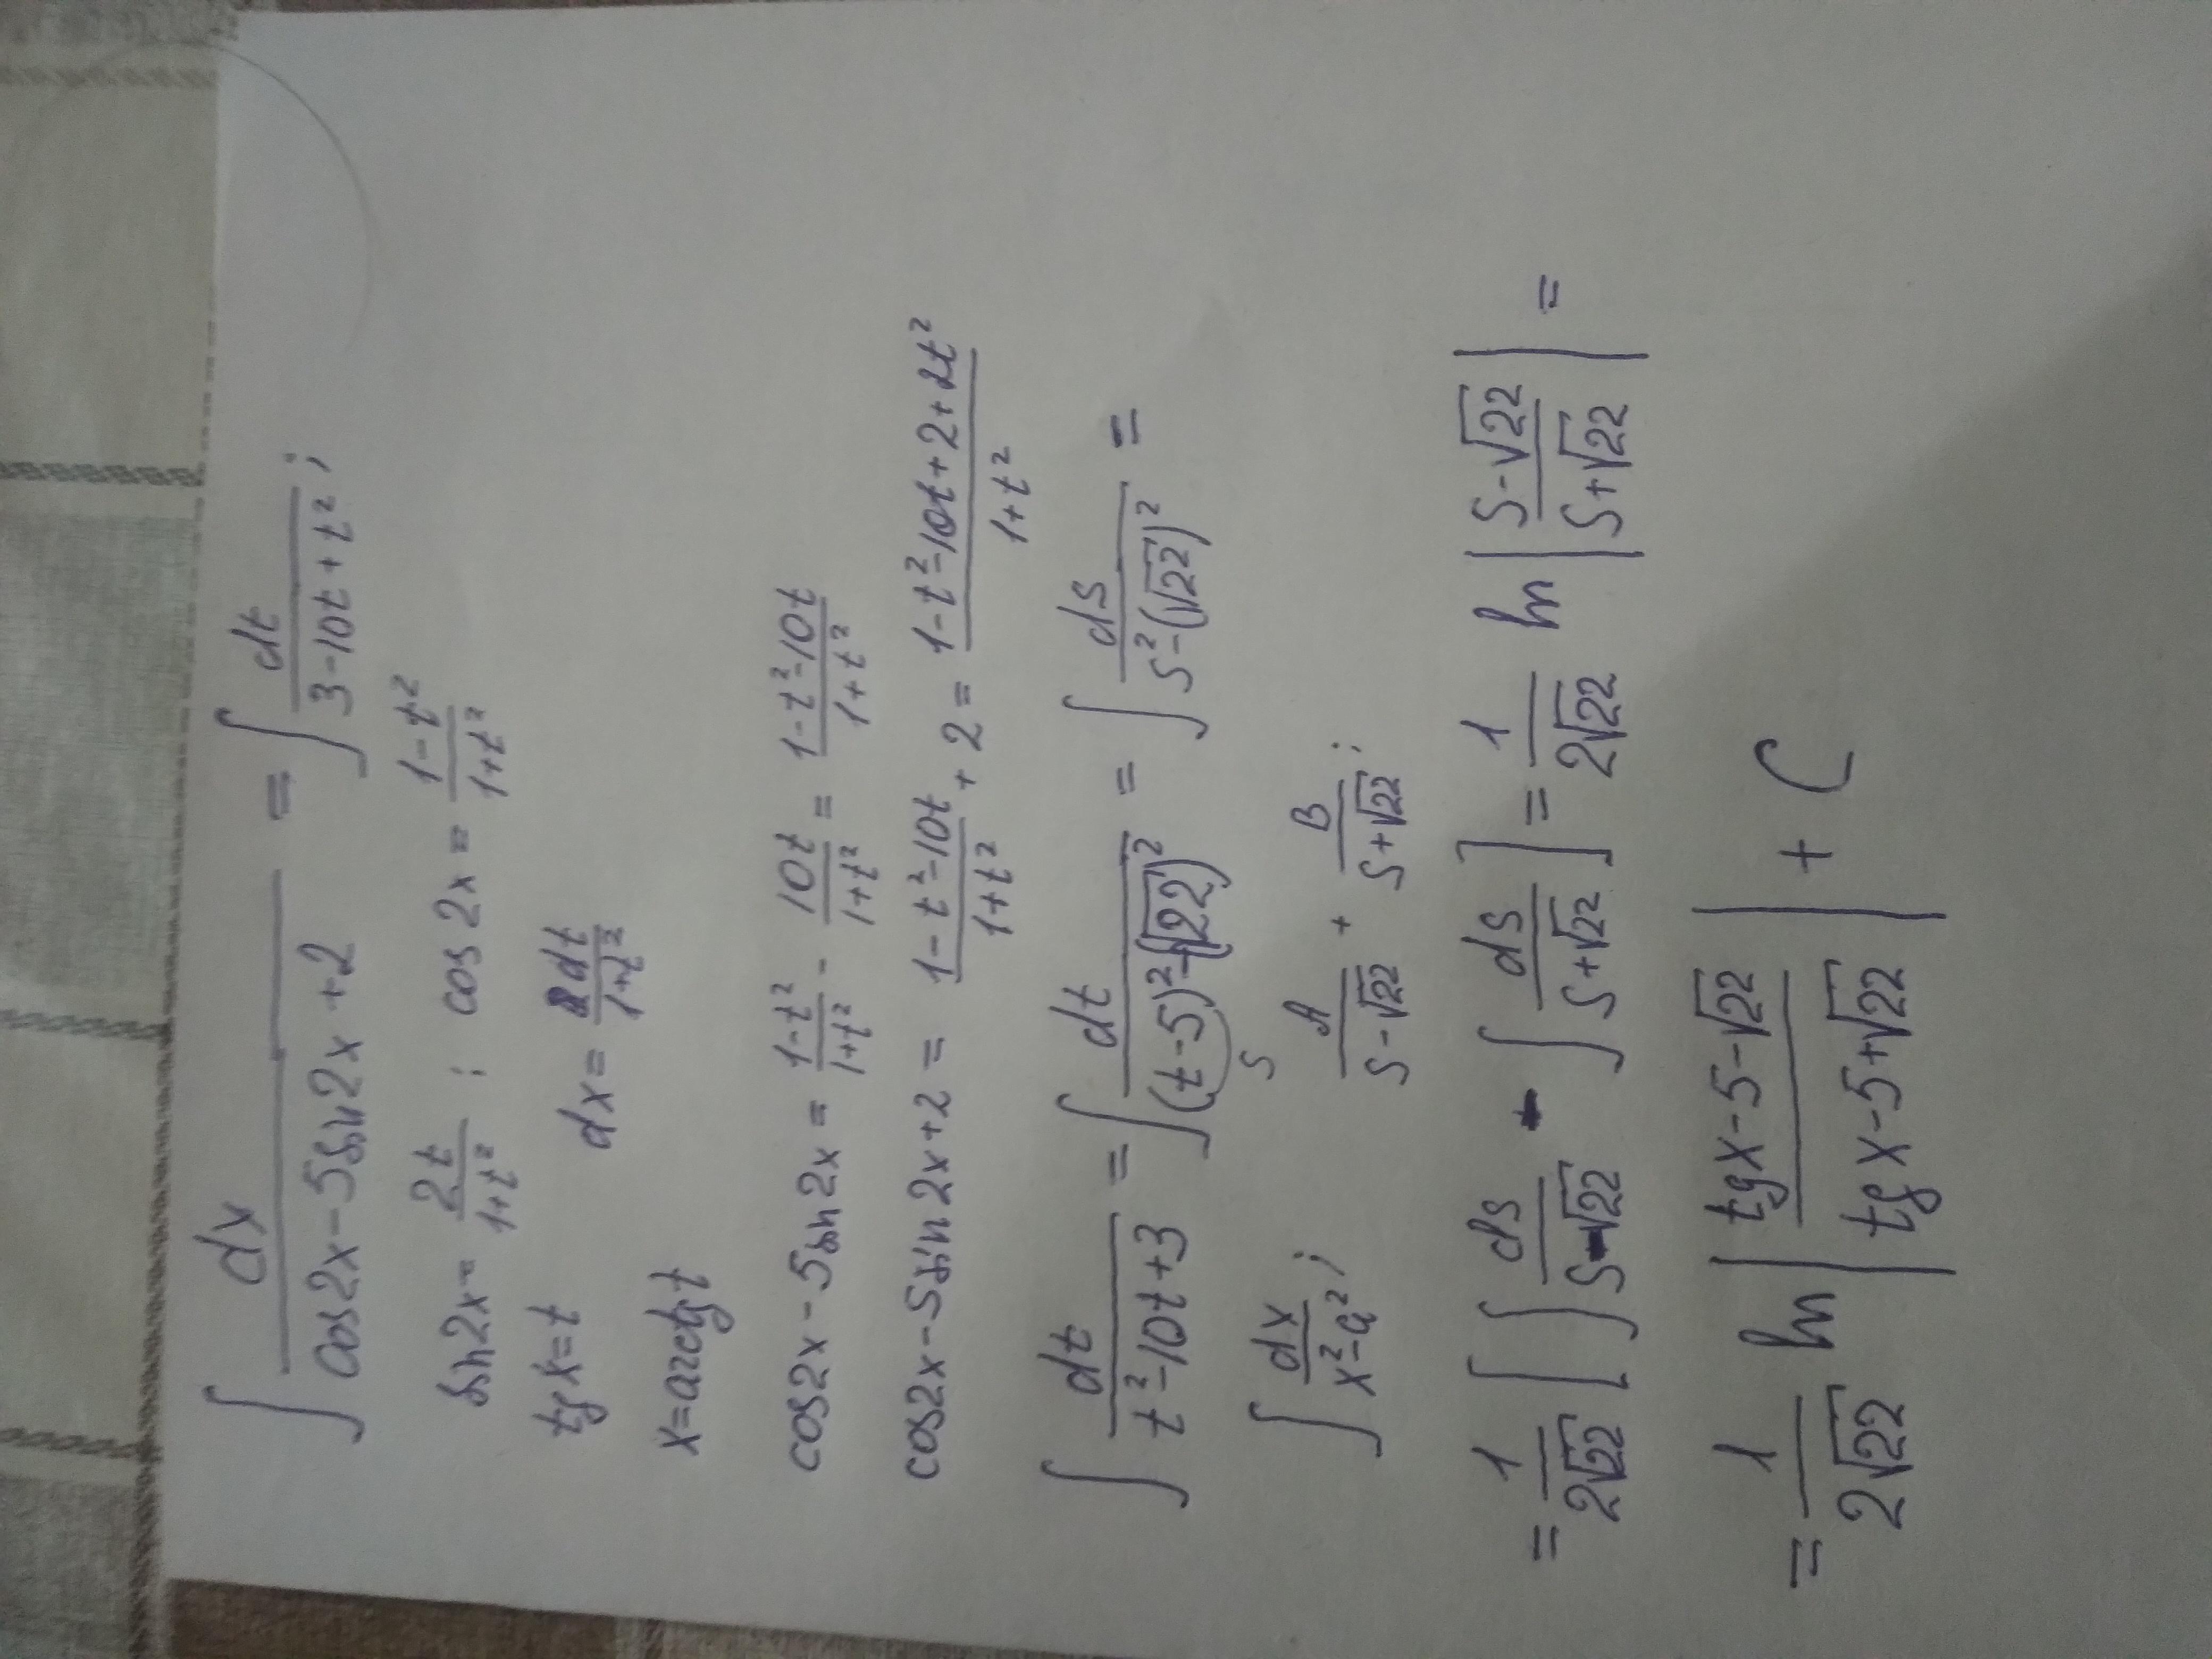 ∫ dx/(cos2x-5sin2x+2) = ∫ dt/(3-10t+t²);
sin2x = 2t/(1+t²); cos2x = (1-t²)/(1+t²)
tgx=t dx = dt/(1+t²)
x=arctgt
cos2x-5sin2x = (1-t²)/(1+t²) - 10t/(1+t²) = (1-t²-10t)/(1+t²)
cos2x-5sin2x+2 = (1-t²-10t)/(1+t²) + 2 = (1-t²-10t+2+2t²)/(1+t²)
∫ dt/(t²-10t+3) = ∫ dt/((t-5)²-(√22)²) = ∫ ds/(s²-(√22)²) =
s
∫ dx/(x²-a²); A/(s-√22) + B/(s+√22);
= 1/(2√22) [∫ ds/(s-√22) - ∫ ds/(s+√22)] = 1/(2√22) ln |(s-√22)/(s+√22)| =
= 1/(2√22) ln |(tgx-5-√22)/(tgx-5+√22)| + C